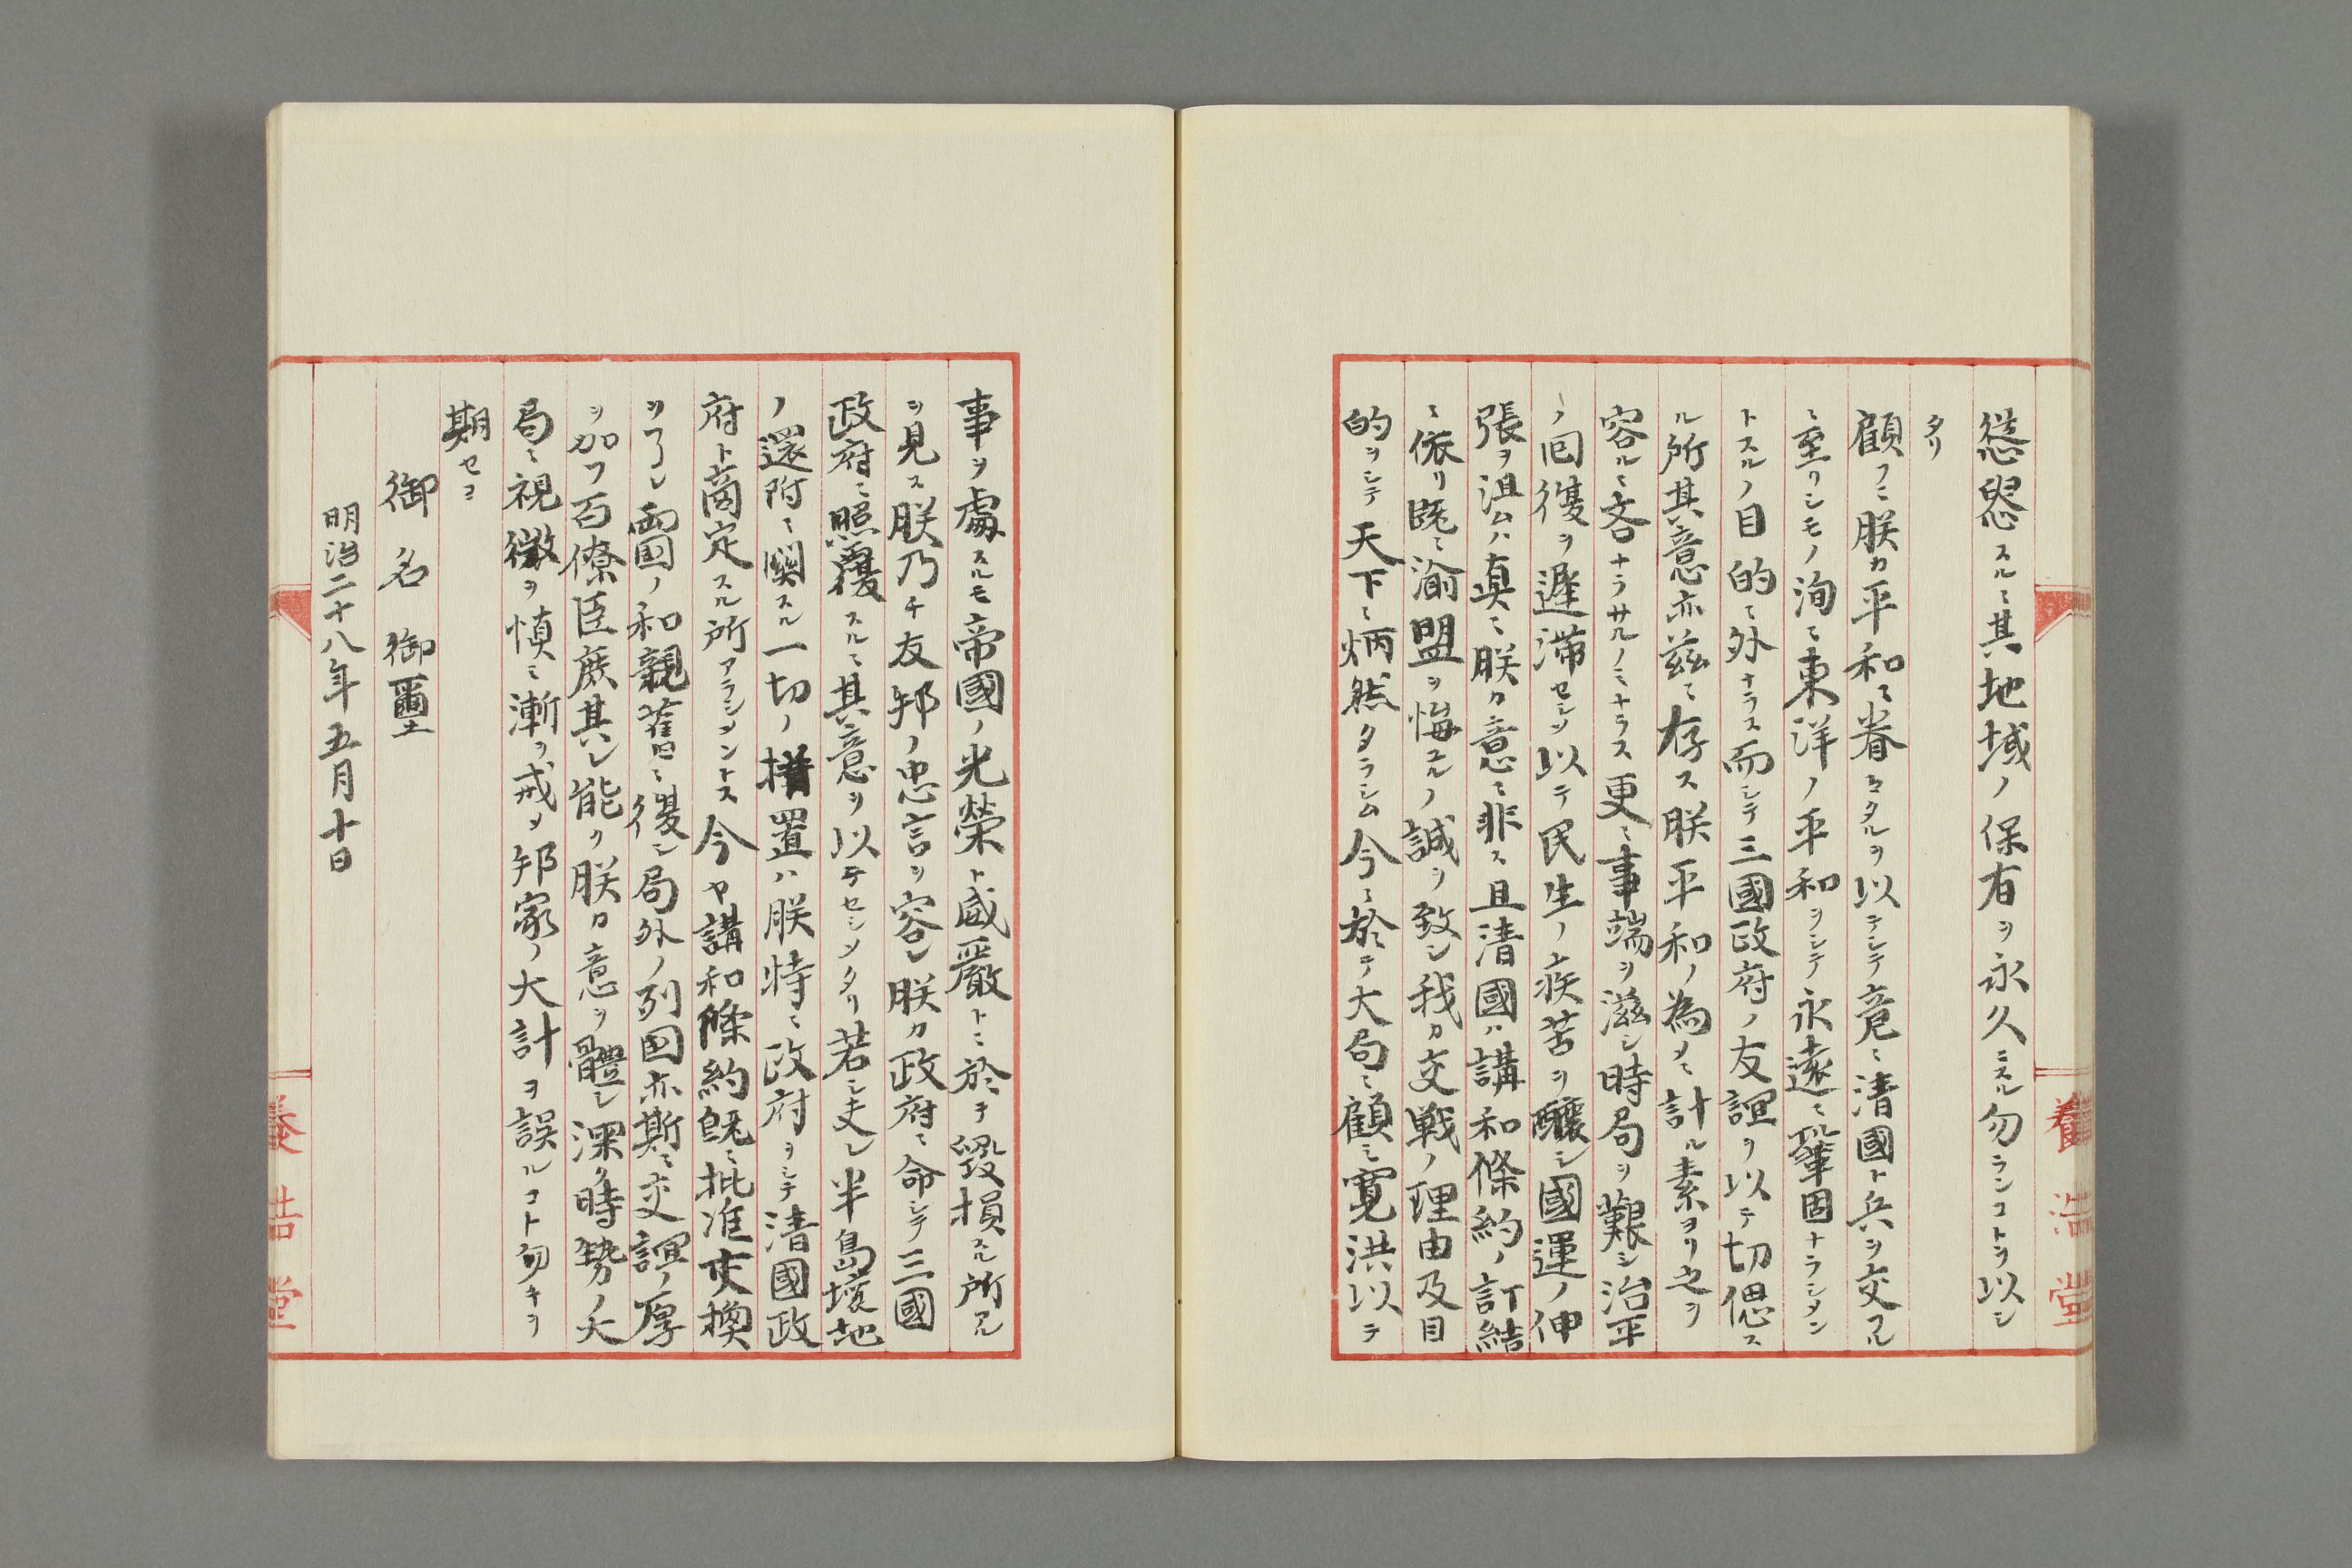 慫慂スルニ其地域ノ保有ヲ永久ニスル勿ランコトヲ以シ
タリ
顧フニ朕カ平和ニ眷々タルヲ以テシテ竟ニ清國ト兵ヲ交フル
ニ至リシモノ洵ニ東洋ノ平和ヲシテ永遠ニ鞏固ナラシメン
トスルノ目的ニ外ナラス而シテ三國政府ノ友誼ヲ以テ切偲ス
ル所其意亦茲ニ存ス朕平和ノ為メニ計ル素ヨリ之ヲ
容ルニ吝ナラサルノミナラス更ニ事端ヲ滋シ時局ヲ艱シ治平
ノ回復ヲ遅滞セシメ以テ民生ノ疾苦ヲ醸シ國運ノ伸
張ヲ沮ムハ真ニ朕カ意ニ非ス且清國ハ講和條約ノ訂結
ニ依リ既ニ渝盟ヲ悔ユルノ誠ヲ致シ我カ交戦ノ理由及目
的ヲシテ天下ニ炳然タラシム今ニ於テ大局ニ顧ミ寛洪以テ
事ヲ處スルモ帝國ノ光榮ト威嚴トニ於テ毀損スル所アル
ヲ見ス朕乃チ友邦ノ忠言ヲ容レ朕カ政府ニ命シテ三國
政府ニ照覆スルニ其意ヲ以テセシメタリ若シ夫レ半島壌地
ノ還附ニ関スル一切ノ措置ハ朕特ニ政府ヲシテ清國政
府ト商定スル所アラシメントス今ヤ講和條約既ニ批准交換
ヲ了シ両國ノ和親舊ニ復シ局外ノ列国亦斯ニ交誼ノ厚
ヲ加フ百僚臣庶其レ能ク朕カ意ヲ體シ深ク時勢ノ大
局ニ視微ヲ慎ミ漸ヲ戒メ邦家ノ大計ヲ誤ルコト勿キヲ
期セヨ
御名御璽
明治二十八年五月十日
養浩堂